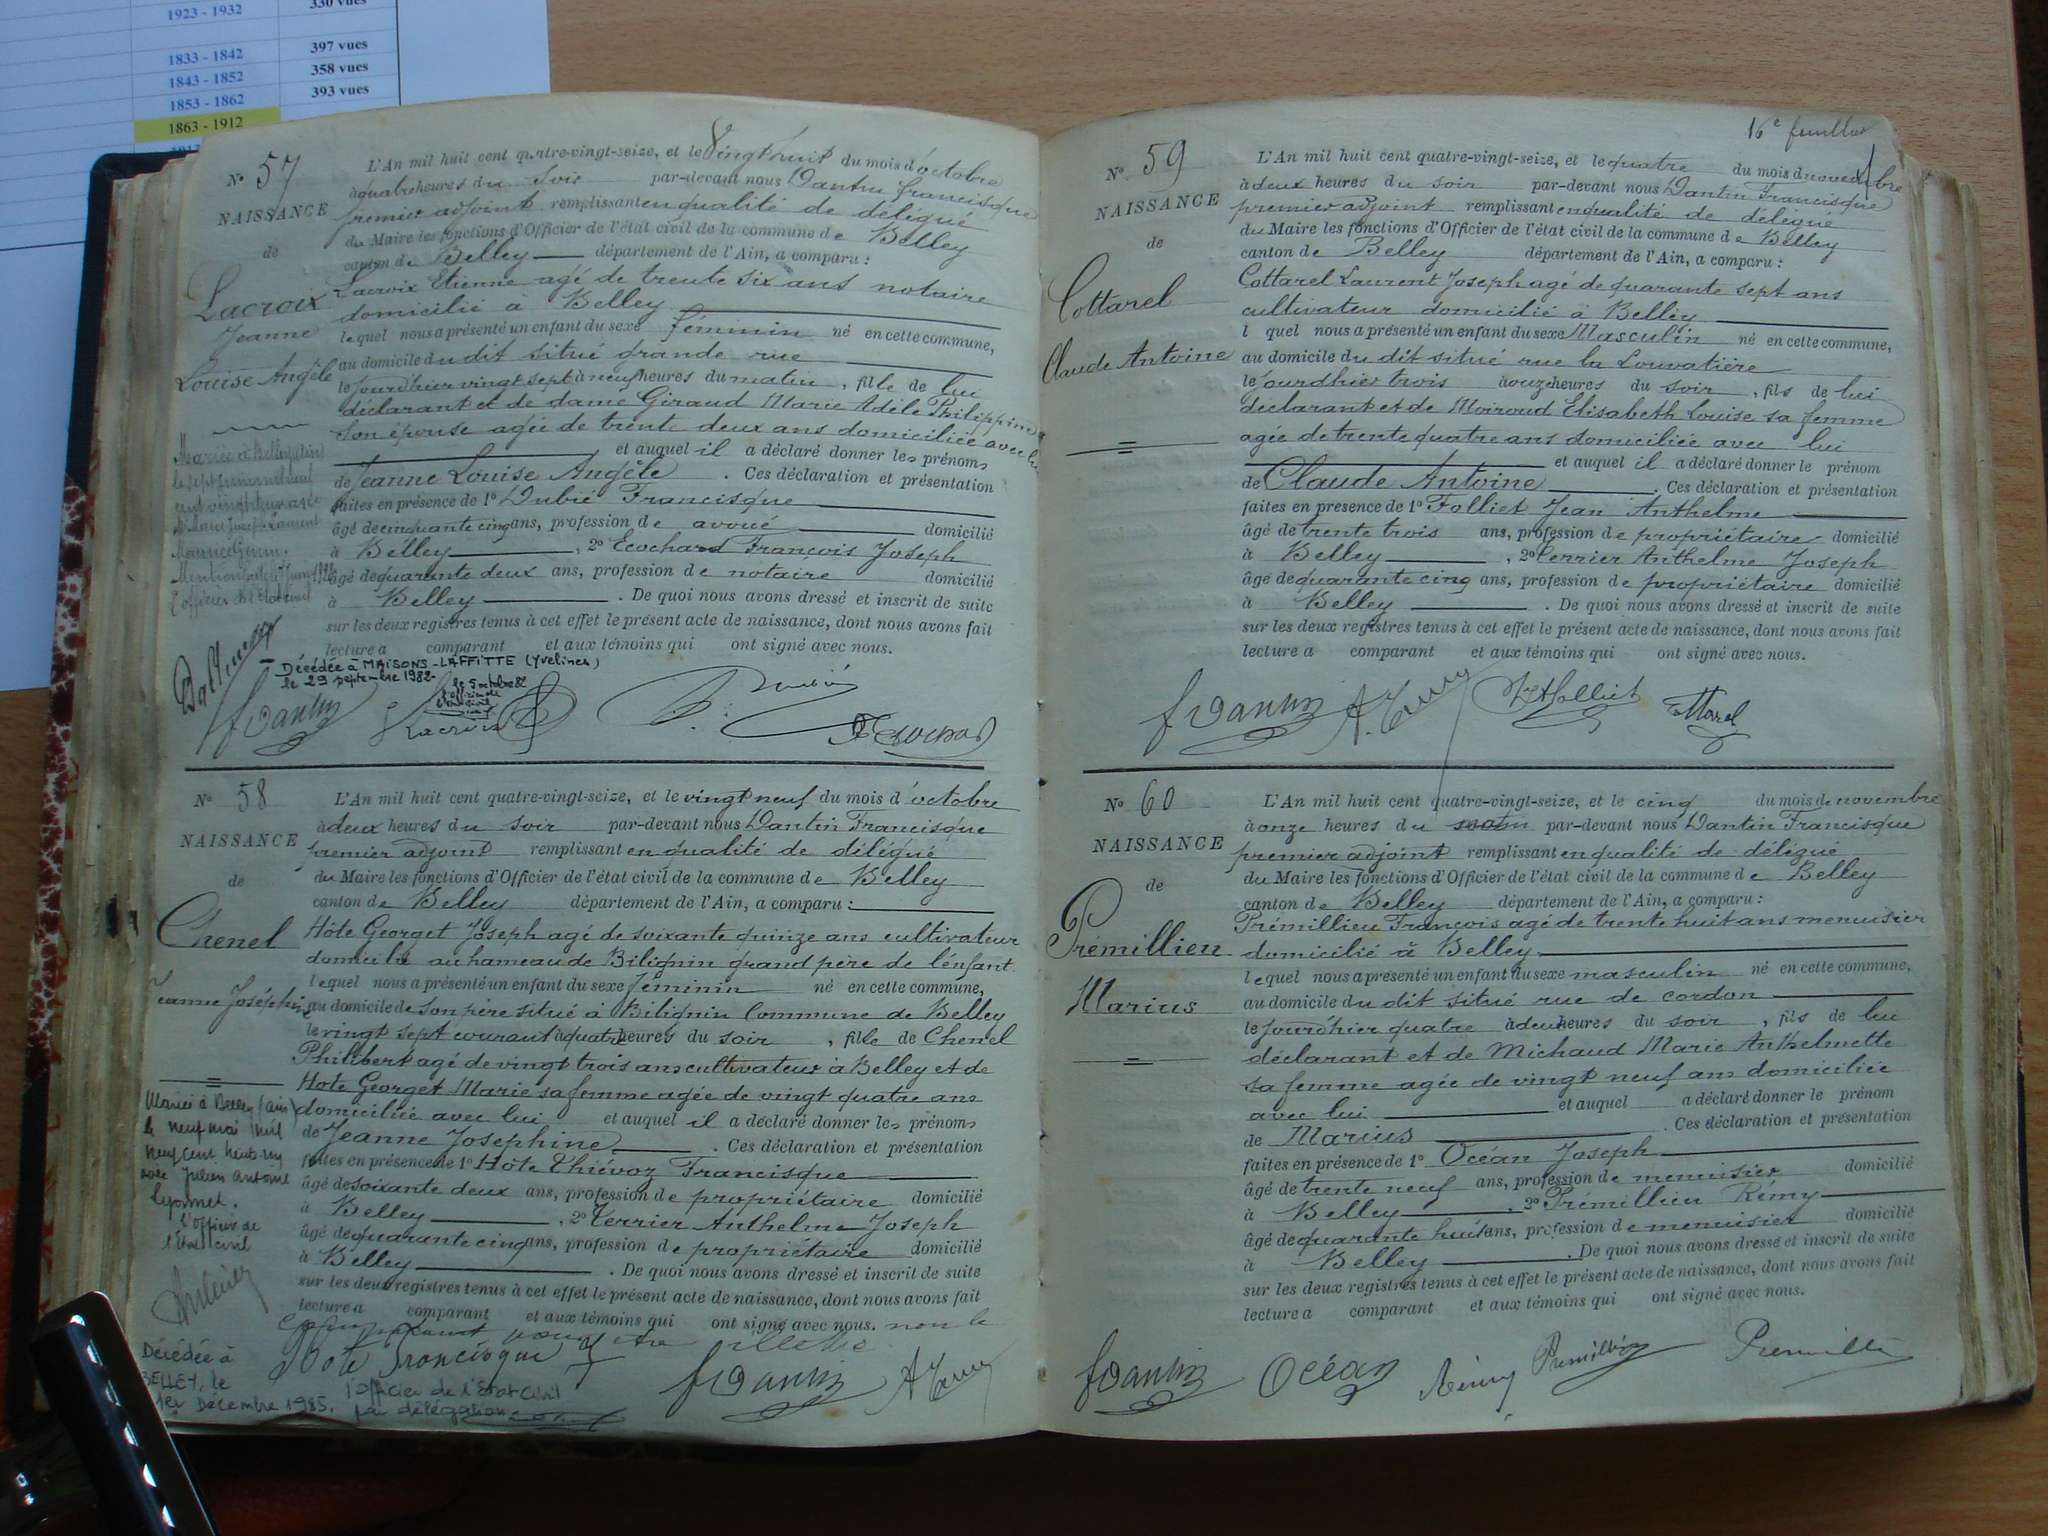 1923 - 1932 330 vues
1833 - 1842 397 vues
1843 - 1852 358 vues
1853 - 1862 393 vues
1863 - 1912
N° 57
NAISSANCE
de
Lacroix
Jeanne
Louise Angèle
L'An mil huit cent quatre-vingt-seize, et le Vingt huit du mois d'octobre
à quatre heures du soir par-devant nous Dantin Francisque
premier adjoint remplissant en qualité de délégué
du Maire les fonctions d'Officier de l'état civil de la commune de Belley
canton de Belley département de l'Ain, a comparu :
Lacroix Etienne agé de trente six ans notaire
domicilié à Belley
lequel nous a présenté un enfant du sexe féminin né en cette commune,
au domicile du dit situé grande rue
le jourdhier vingt sept à neuf heures du matin, fille de lui
déclarant et de dame Giraud Marie Adèle Philippine
son épouse agée de trente deux ans domiciliée avec lui
et auquel il a déclaré donner les prénoms
de Jeanne Louise Angèle. Ces déclaration et présentation
faites en présence de 1° Dubie Francisque
âgé de cinquante cinq ans, profession de avoué domicilié
à Belley, 2° Ecochard François Joseph
âgé de quarante deux ans, profession de notaire domicilié
à Belley. De quoi nous avons dressé et inscrit de suite
sur les deux registres tenus à cet effet le présent acte de naissance, dont nous avons fait
lecture a comparant et aux témoins qui ont signé avec nous.
Mariée à Belley (Ain)
Maurice
l'officier de l'Etat civil
Décédée à MAISONS-LAFFITTE (Yvelines)
le 29 septembre 1982
le 5 octobre 82
fDantin
Lacroix
N° 58
NAISSANCE
de
Chenel
Jeanne Joséphine
L'An mil huit cent quatre-vingt-seize, et le vingt neuf du mois d'octobre
à deux heures du soir par-devant nous Dantin Francisque
premier adjoint remplissant en qualité de délégué
du Maire les fonctions d'Officier de l'état civil de la commune de Belley
canton de Belley département de l'Ain, a comparu :
Hôte Georget Joseph agé de soixante quinze ans cultivateur
domicilié au hameau de Bilignin grand père de l'enfant
lequel nous a présenté un enfant du sexe féminin né en cette commune,
au domicile de son père situé à Bilignin Commune de Belley
le vingt sept courant à quatre heures du soir, fille de Chenel
Philibert agé de vingt trois ans cultivateur à Belley et de
Hote Georget Marie sa femme agée de vingt quatre ans
domiciliée avec lui et auquel il a déclaré donner les prénoms
de Jeanne Josephine. Ces déclaration et présentation
faites en présence de 1° Hôte Thiévoz Francisque
âgé de soixante deux ans, profession de propriétaire domicilié
à Belley, 2° Terrier Anthelme Joseph
âgé de quarante cinq ans, profession de propriétaire domicilié
à Belley. De quoi nous avons dressé et inscrit de suite
sur les deux registres tenus à cet effet le présent acte de naissance, dont nous avons fait
lecture a comparant et aux témoins qui ont signé avec nous. non le
comparant pour être illettré
Mariée à Belley (Ain)
le neuf mai mil
neuf cent
avec Julien Antoine
Lyonnet.
l'Officier de
l'Etat civil
Décédée à
BELLEY, le
1er Décembre 1985.
l'Officier de l'Etat Civil
par délégation
Hote Francisque
fDantin
N° 59
16e feuillet
NAISSANCE
de
Cottarel
Claude Antoine
L'An mil huit cent quatre-vingt-seize, et le quatre du mois de novembre
à deux heures du soir par-devant nous Dantin Francisque
premier adjoint remplissant en qualité de délégué
du Maire les fonctions d'Officier de l'état civil de la commune de Belley
canton de Belley département de l'Ain, a comparu :
Cottarel Laurent Joseph agé de quarante sept ans
cultivateur domicilié à Belley
l quel nous a présenté un enfant du sexe Masculin né en cette commune,
au domicile du dit situé rue la Louvatière
le jourdhier trois à onze heures du soir, fils de lui
déclarant et de Moiroud Elisabeth Louise sa femme
agée de trente quatre ans domiciliée avec lui
et auquel il a déclaré donner le prénom
de Claude Antoine. Ces déclaration et présentation
faites en présence de 1° Folliet Jean Anthelme
âgé de trente trois ans, profession de propriétaire domicilié
à Belley, 2° Terrier Anthelme Joseph
âgé de quarante cinq ans, profession de propriétaire domicilié
à Belley. De quoi nous avons dressé et inscrit de suite
sur les deux registres tenus à cet effet le présent acte de naissance, dont nous avons fait
lecture a comparant et aux témoins qui ont signé avec nous.
fDantin
N° 60
NAISSANCE
de
Prémillieu
Marius
L'An mil huit cent quatre-vingt-seize, et le cinq du mois de novembre
à onze heures du matin par-devant nous Dantin Francisque
premier adjoint remplissant en qualité de délégué
du Maire les fonctions d'Officier de l'état civil de la commune de Belley
canton de Belley département de l'Ain, a comparu :
Prémillieu François agé de trente huit ans menuisier
domicilié à Belley
lequel nous a présenté un enfant du sexe masculin né en cette commune,
au domicile du dit situé rue de cordon
le jourdhier quatre à deux heures du soir, fils de lui
déclarant et de Michaud Marie Anthelmette
sa femme agée de vingt neuf ans domiciliée
avec lui et auquel a déclaré donner le prénom
de Marius. Ces déclaration et présentation
faites en présence de 1° Océan Joseph
âgé de trente neuf ans, profession de menuisier domicilié
à Belley, 2° Prémillieu Rémy
âgé de quarante huit ans, profession de menuisier domicilié
à Belley. De quoi nous avons dressé et inscrit de suite
sur les deux registres tenus à cet effet le présent acte de naissance, dont nous avons fait
lecture a comparant et aux témoins qui ont signé avec nous.
fDantin Océan Rémy Premillieu